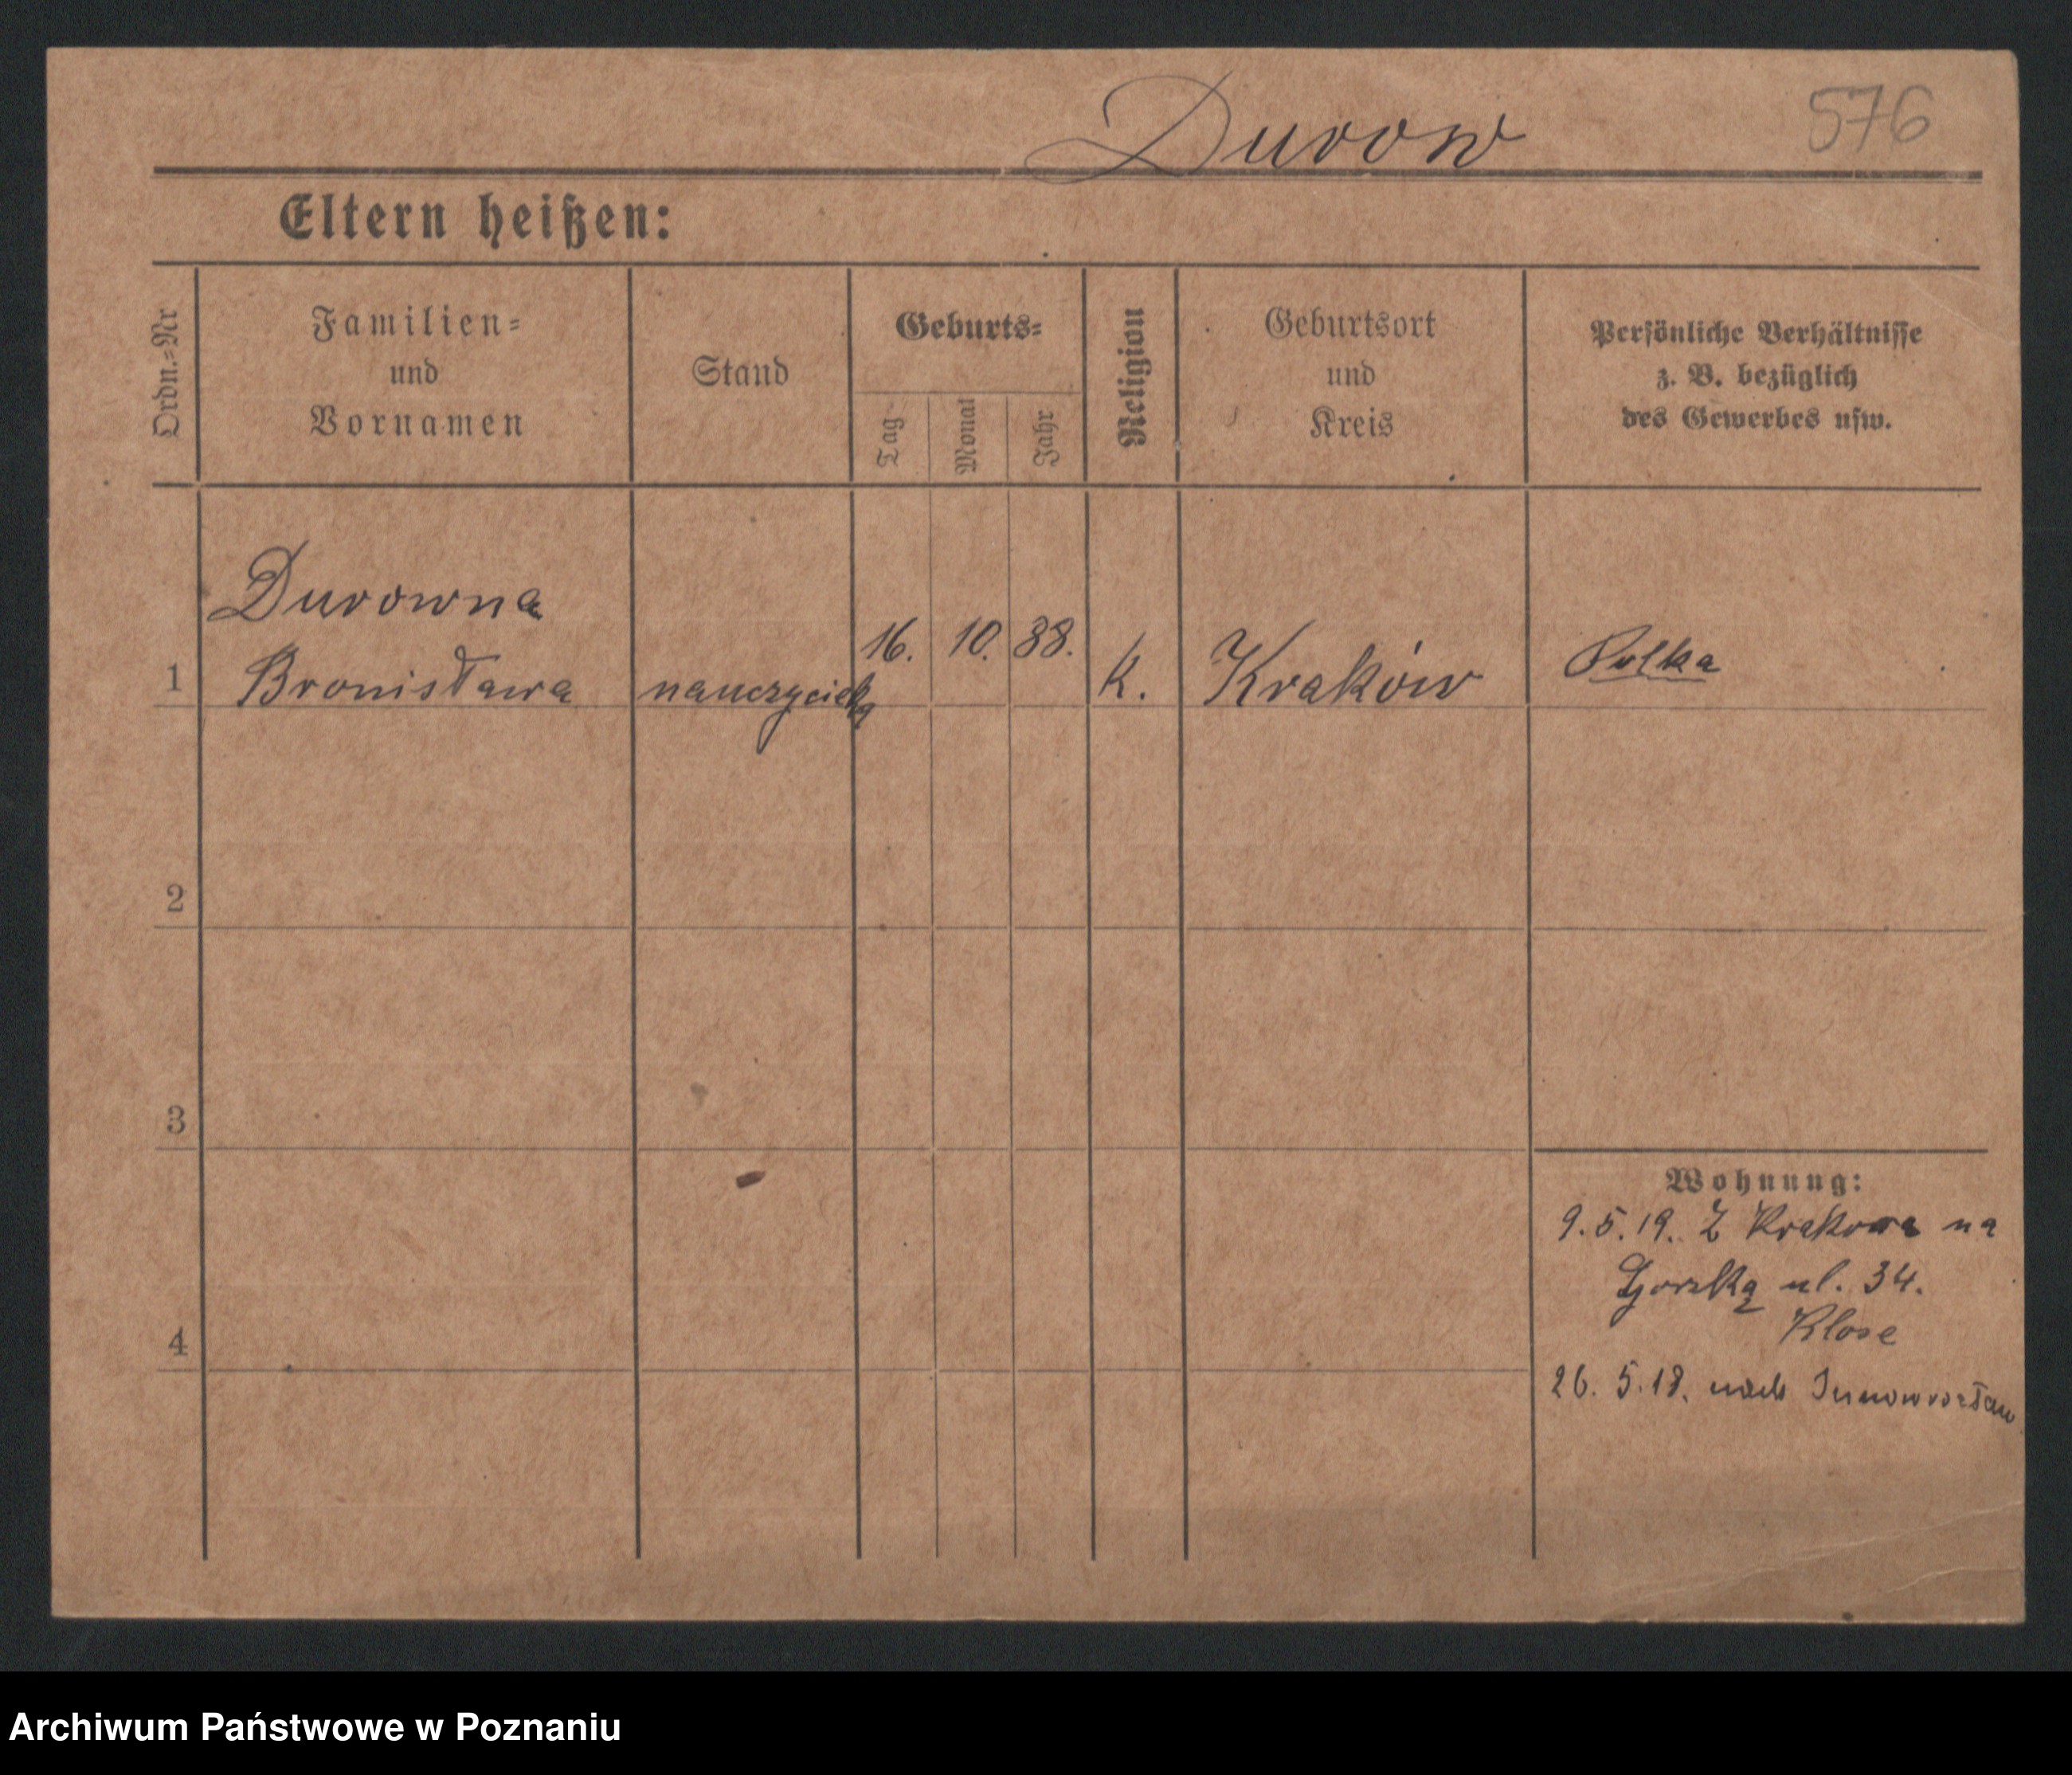 Durow 576
Eltern heißen:
Ordn.=Nr
Familien=
und
Vornamen
Stand
Geburts=
Tag
Monat
Jahr
Religion
Geburtsort
und
Kreis
Persönliche Verhältnisse
z. B. bezüglich
des Gewerbes usw.
1
Durowna
Bronisława
16. 10. 88.
K.
Kraków
Polka
2
3
4
Wohnung:
9.5.19. Z Krakowa na
ul. 34.
Klose
26. 5.18. nach
Archiwum Państwowe w Poznaniu